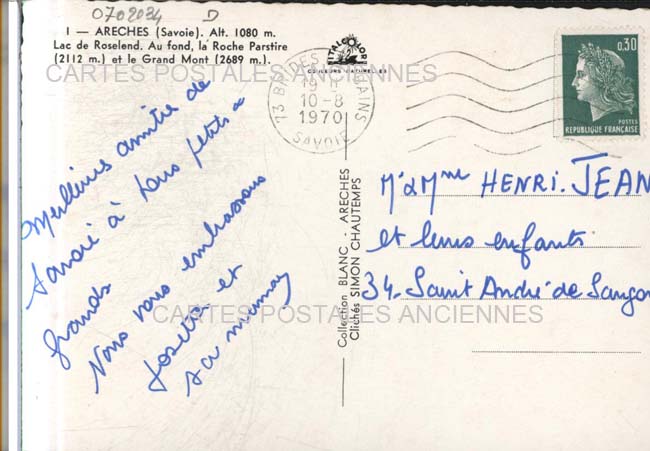 0702034 D
1 — ARECHES (Savoie). Alt. 1080 m.
Lac de Roselend. Au fond, la Roche Parstire
(2112 m.) et le Grand Mont (2689 m.).
CARTES POSTALES ANCIENNES
ITALCOLOR
COULEURS NATURELLES
73 BRIDES BAINS
10-8
1970
SAVOIE
0,30
POSTES
REPUBLIQUE FRANÇAISE
Meilleures amitiés de
Savoie à tous petits et
grands
Nous vous embrassons
Josette et
sa maman
Collection BLANC - ARECHES
Clichés SIMON CHAUTEMPS
Mr & Mme HENRI. JEAN
et leurs enfants
34. Saint André de Sango
CARTES POSTALES ANCIENNES